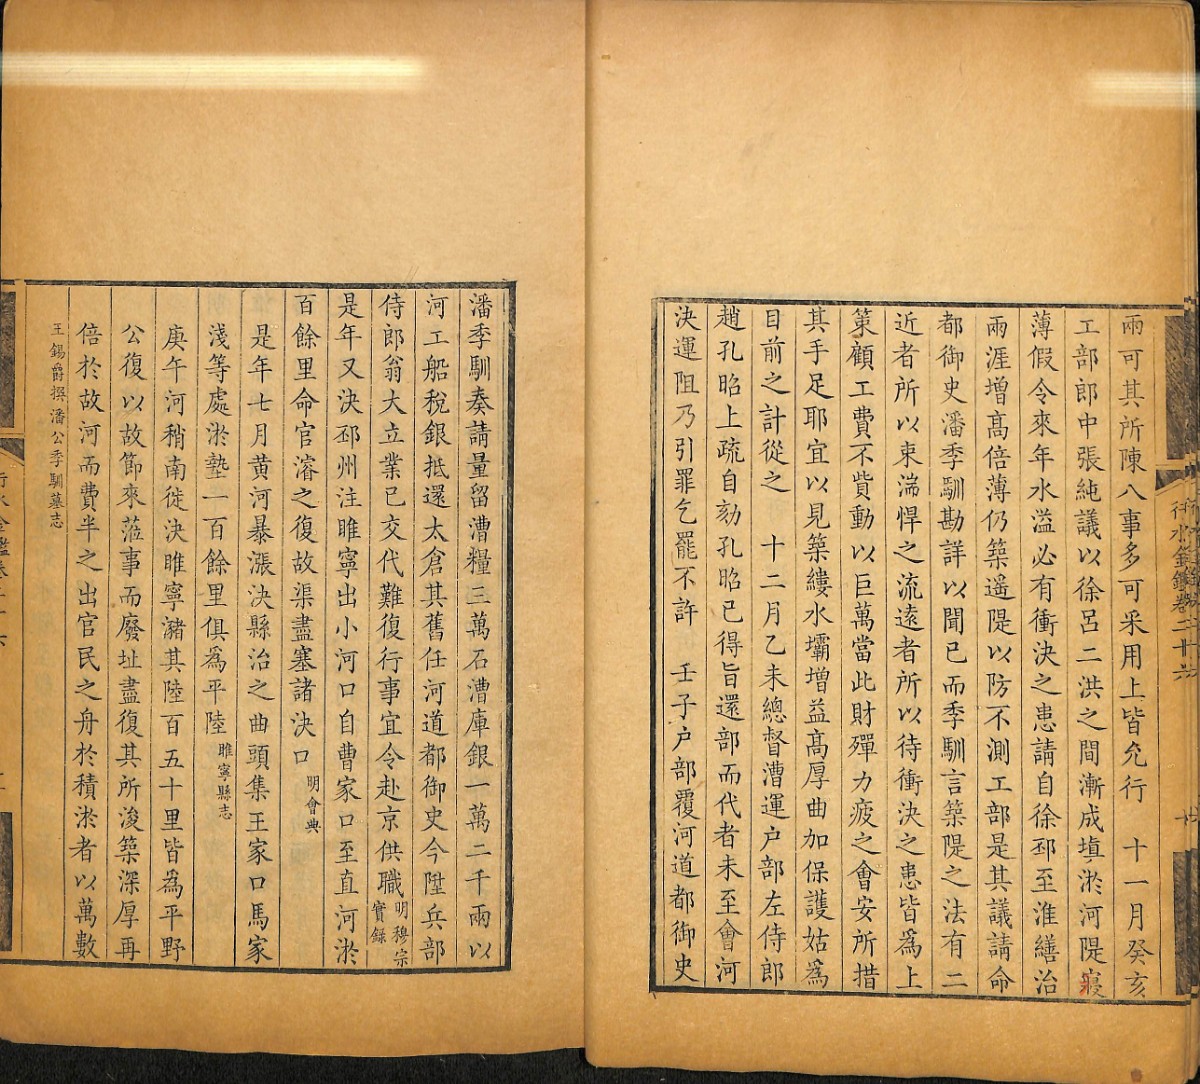 兩可其所陳八事多可采用上皆允行　十一月癸亥
工部郎中張純議以徐呂二洪之間漸成塡淤河隄寖
薄假令來年水溢必有衝決之患請自徐邳至淮繕治
兩涯增高倍薄仍築遥隄以防不測工部是其議請命
都御史潘季馴勘詳以聞已而季馴言築隄之法有二
近者所以束湍悍之流遠者所以待衝決之患皆爲上
策顧工費不貲動以巨萬當此財殫力疲之會安所措
其手足耶宜以見築縷水壩增益高厚曲加保護姑爲
目前之計從之　十二月乙未總督漕運户部左侍郎
趙孔昭上疏自劾孔昭已得旨還部而代者未至會河
決運阻乃引罪乞罷不許　壬子户部覆河道都御史
潘季馴奏請量留漕糧三萬石漕庫銀一萬二千兩以
河工船稅銀抵還太倉其舊任河道都御史今陞兵部
侍郎翁大立業已交代難復行事宜令赴京供職明穆宗實録
是年又決邳州注睢寧出小河口自曹家口至直河淤
百餘里命官濬之復故渠盡塞諸決口明會典
是年七月黄河暴漲決縣治之曲頭集王家口馬家
淺等處淤墊一百餘里俱爲平陸睢寧縣志
庚午河稍南徙決睢寧瀦其陸百五十里皆爲平野
公復以故節來蒞事而廢址盡復其所浚築深厚再
倍於故河而費半之出官民之舟於積淤者以萬數
王錫爵撰潘公季馴墓志
行水金鑑卷二十六